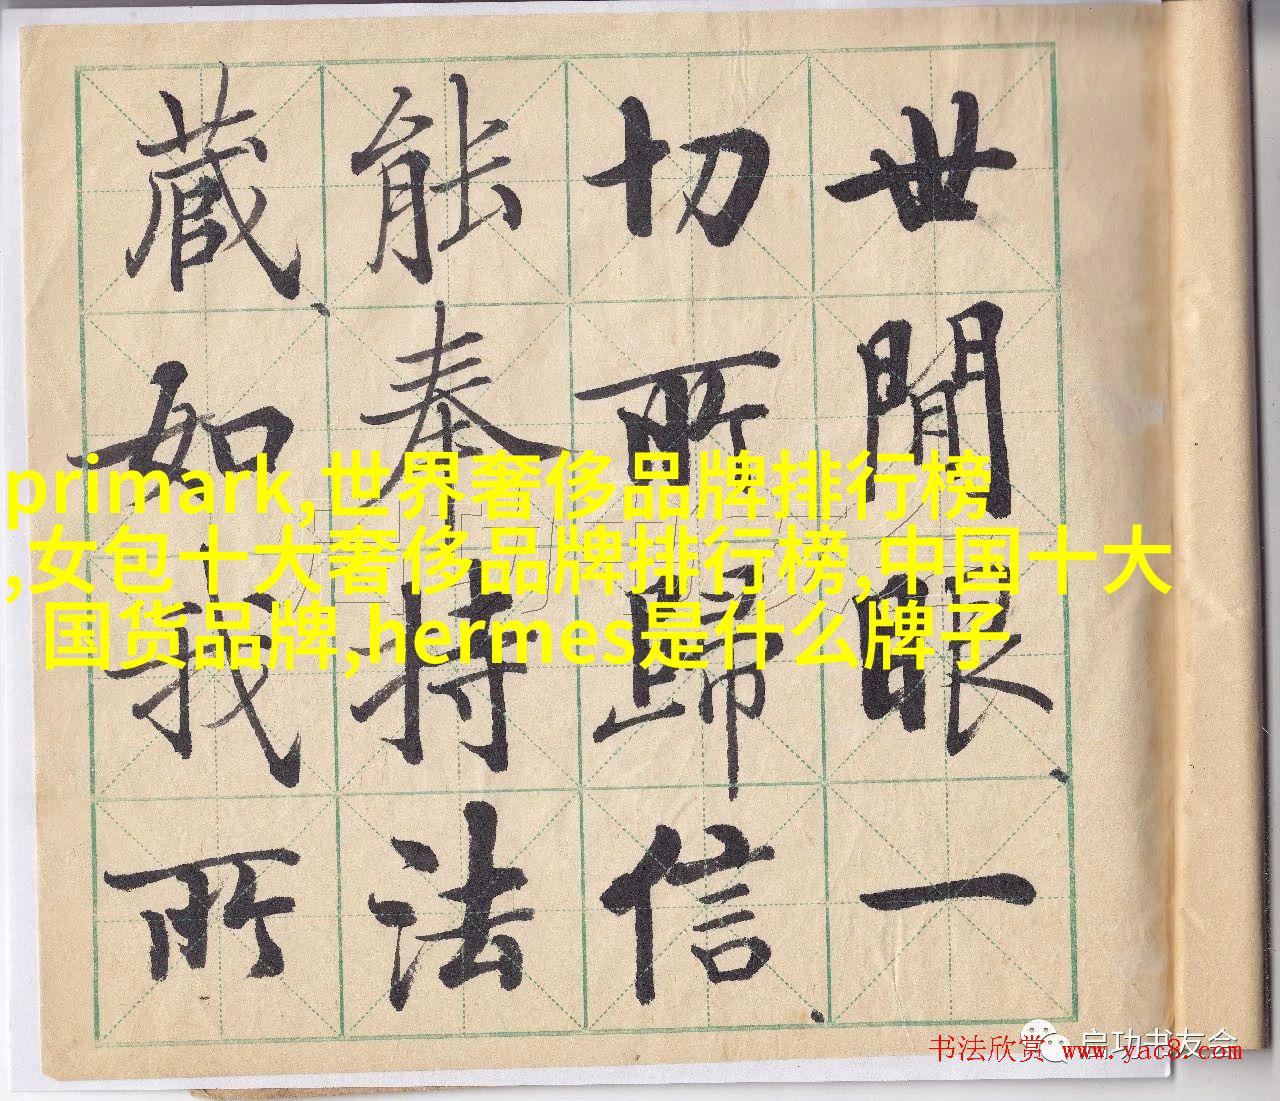 世間眼一
切所歸信
能奉持法
藏如我所
primark,世界奢侈品牌排行榜
,女包十大奢侈品牌排行榜,中国十大
国货品牌,hermes是什么牌子
启功书友会
书法欣赏 www.yac8.com